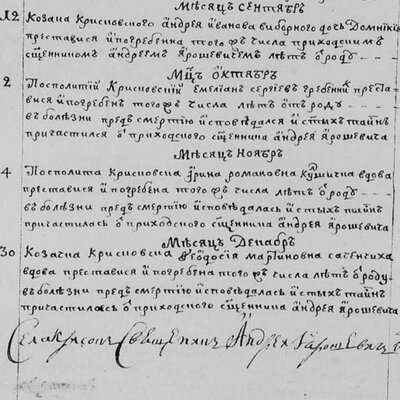 Месяцъ Сентябръ
12 Козака Крисковского Андрея Иванова виборного дочь Домникія
преставися и погребенна того жъ числа приходскимъ
священникомъ Андреемъ Ярошевичемъ лѣтъ ѿ роду
Мцъ Октябръ
2 Посполитій Крисковскій Емелианъ Сергіевъ Гребенній преста-
вися и погребенъ того жъ числа лѣтъ ѿ роду
въ болѣзни предъ смертію исповѣдался и стыхъ таинъ
причастился ѿ приходского сщенника Андрея Ярошевича
Месяцъ Ноябръ
4 Посполита Крисковска Ирина Романовна вдова
преставися и погребена того жъ числа лѣтъ ѿ роду
въ болѣзни предъ смертію исповѣдалась и стыхъ таинъ
причастилась ѿ приходского сщенника Андрея Ярошевича
Месяцъ Декабръ
30 Козачка Крисковска Феодосія Мартиновна
вдова преставися и погребена того жъ числа лѣтъ ѿ роду
въ болѣзни предъ смертію исповѣдалась и стыхъ таинъ
причастилась ѿ приходского сщенника Андрея Ярошевича
Села Крисокъ Священникъ Андрей Ярошевичъ